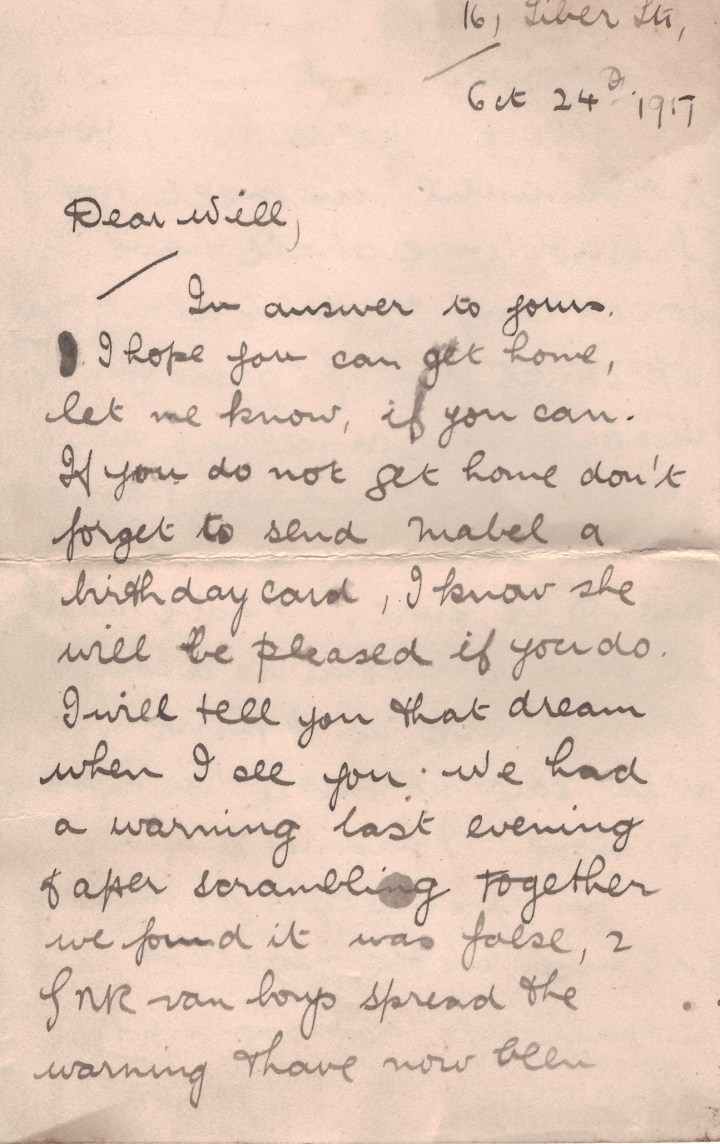 16, Siber Str,
Oct 24th 1917
Dear Will,
In answer to yours.
I hope you can get home,
let me know, if you can.
If you do not get home don't
forget to send Mabel a
birthday card, I know she
will be pleased if you do.
I will tell you that dream
when I see you. We had
a warning last evening
& after scrambling together
we found it was false, 2
GNR van boys spread the
warning & have now been